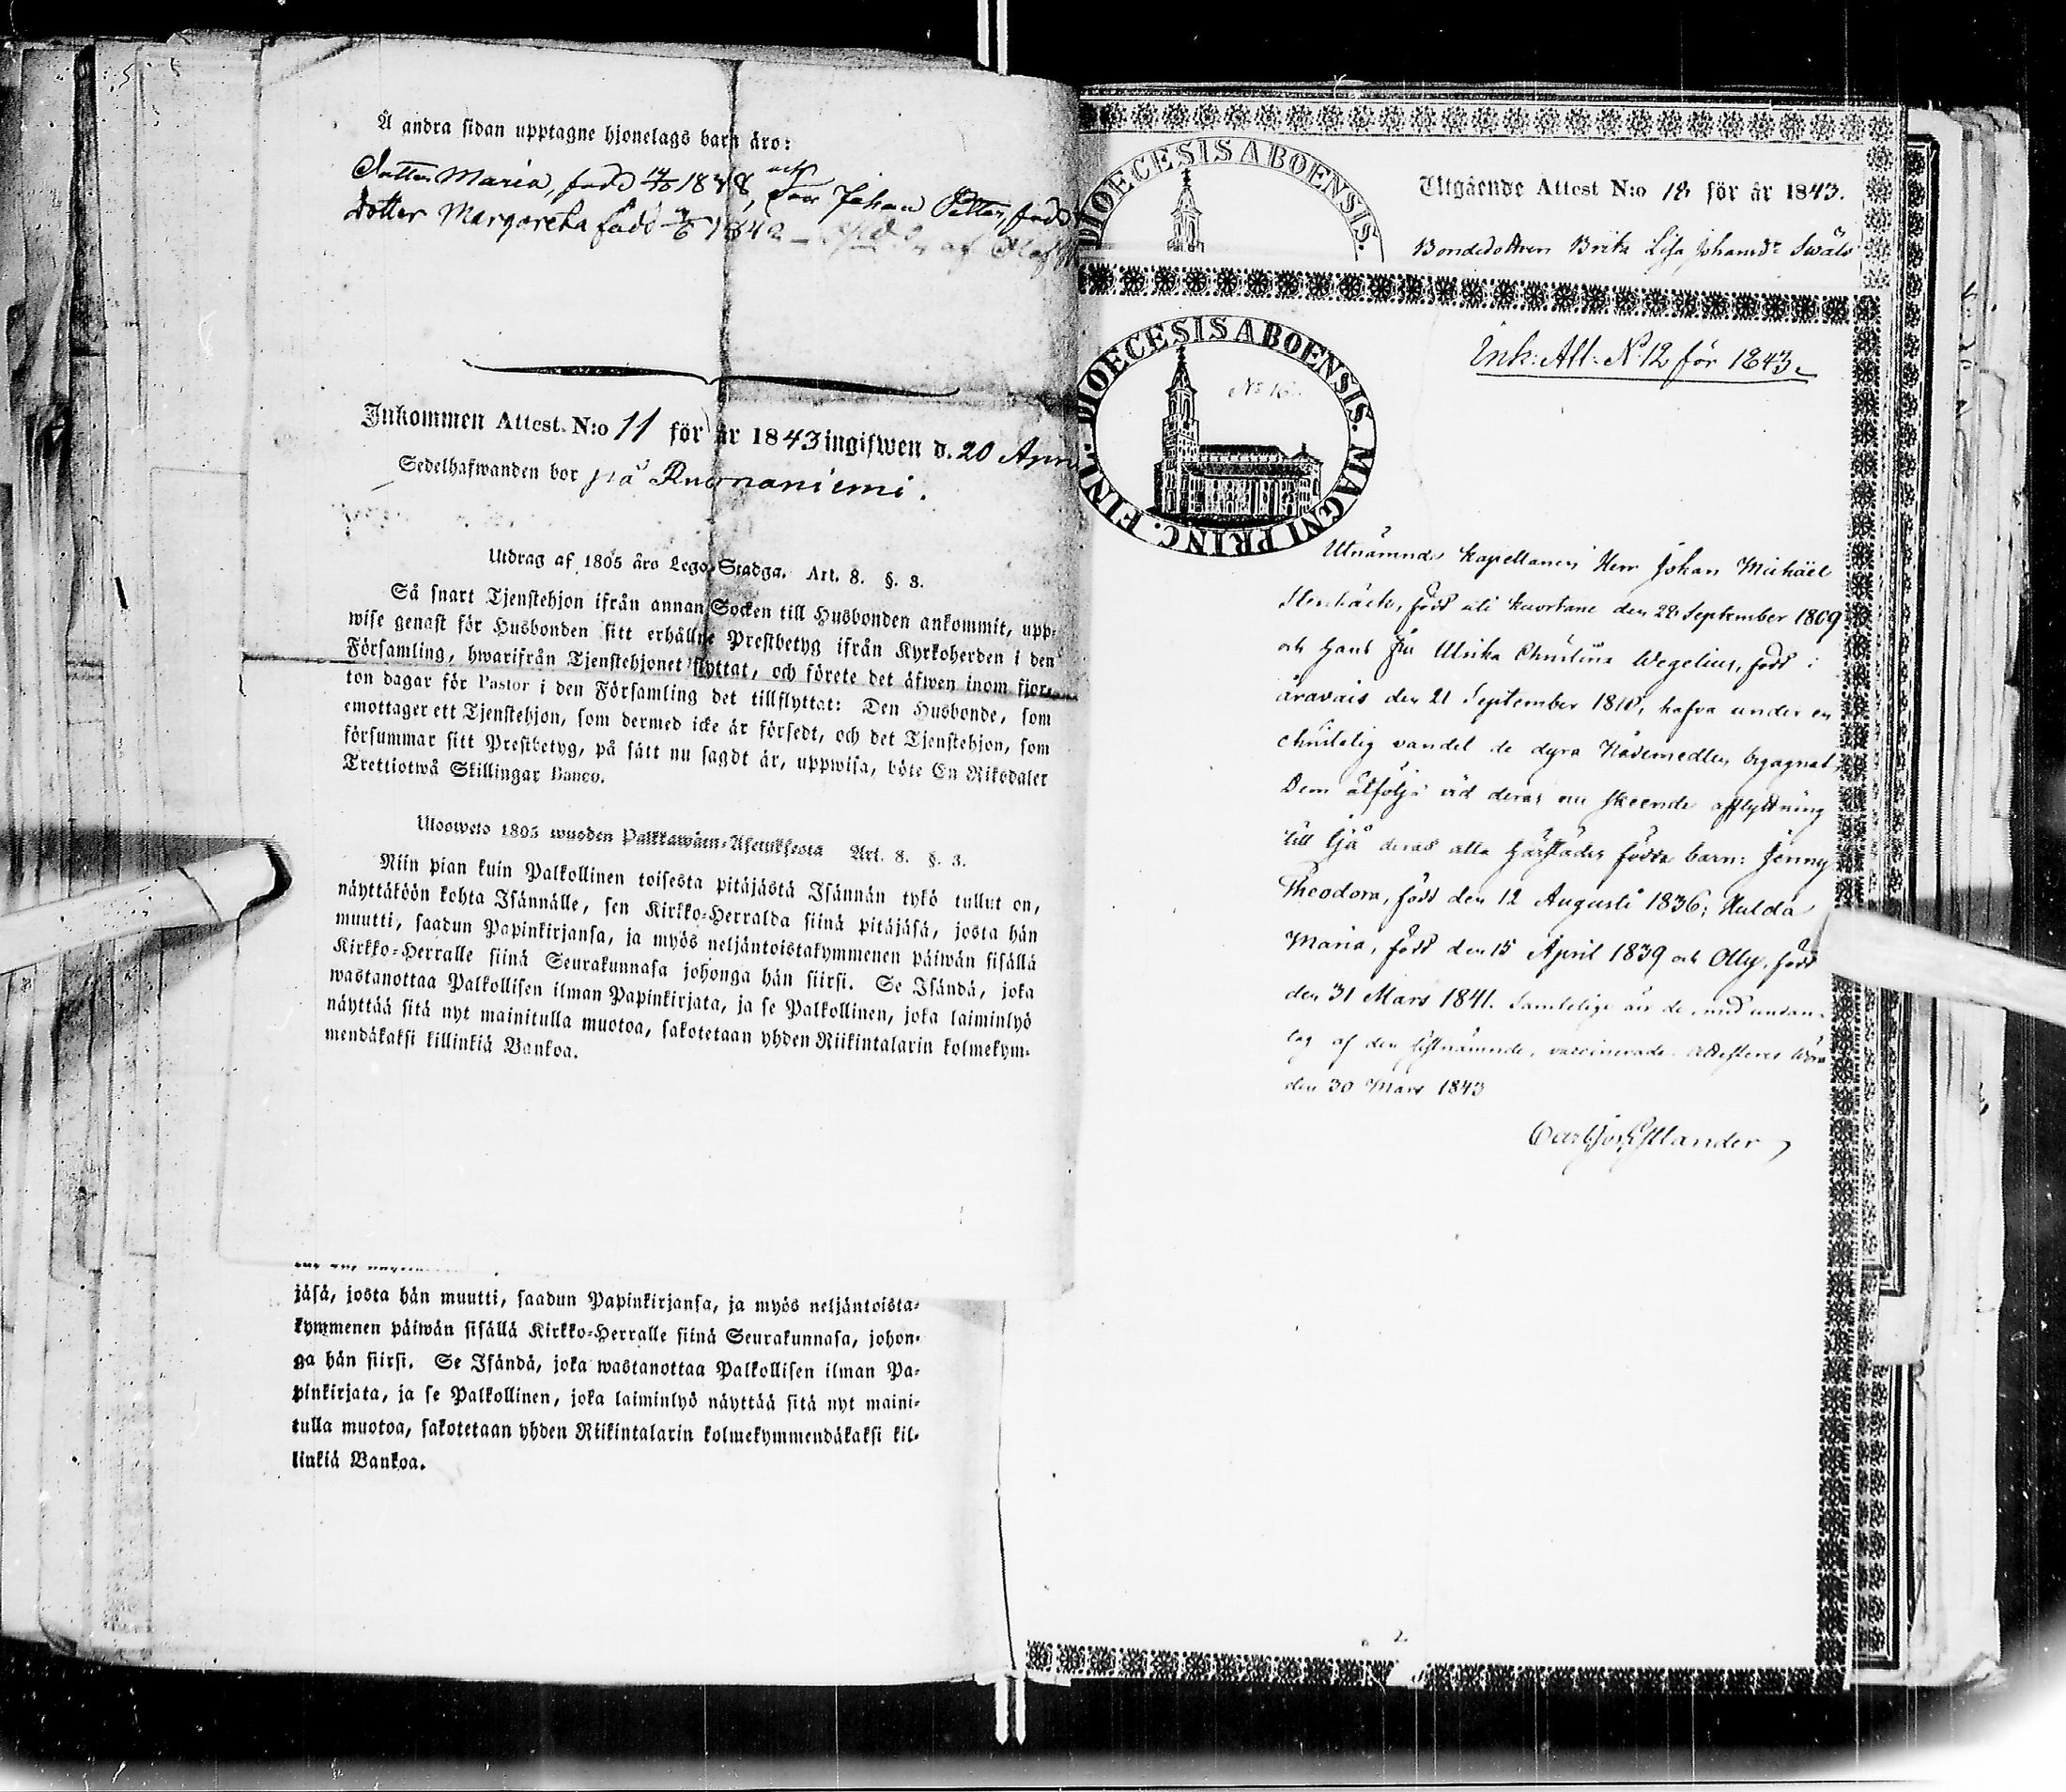 Å andra sidan upptagne hjonelags barn äro:
Dotter Maria, född 1838, och Son Johan Petter, född
Dotter Margareta född 1842
Inkommen Attest. N:o 11 för år 1843 ingifwen d. 20 Apri
Sedelhafwanden bor på Ruonaniemi.
Utdrag af 1805 års Lego-Stadga. Art. 8. §. 3.
Så snart Tjenstehjon ifrån annan Socken till Husbonden ankommit, upp-
wise genast för Husbonden sitt erhållne Prestbetyg ifrån Kyrkoherden i den
Församling, hwarifrån Tjenstehjonet flyttat, och förete det äfwen inom fjor-
ton dagar för Pastor i den Församling det tillflyttat: Den Husbonde, som
emottager ett Tjenstehjon, som dermed icke är försedt, och det Tjenstehjon, som
försummar sitt Prestbetyg, på sätt nu sagdt är, uppwisa, böte En Riksdaler
Trettiotwå Skillingar Banco.
Ulosweto 1805 wuoden Palkkawäen-Asetuksesta Art. 8. §. 3.
Niin pian kuin Palkollinen toisesta pitäjästä Isännän tykö tullut on,
näyttäköön kohta Isännälle, sen Kirkko-Herralda siinä pitäjäsä, josta hän
muutti, saadun Papinkirjansa, ja myös neljäntoistakymmenen päiwän sisällä
Kirkko-Herralle siinä Seurakunnasa johonga hän siirsi. Se Isändä, joka
wastanottaa Palkollisen ilman Papinkirjata, ja se Palkollinen, joka laiminlyö
näyttää sitä nyt mainitulla muotoa, sakotetaan yhden Riikintalarin kolmekym-
mendäkaksi killinkiä Bankoa.
jäsä, josta hän muutti, saadun Papinkirjansa, ja myös neljäntoista-
kymmenen päiwän sisällä Kirkko-Herralle siinä Seurakunnasa, johon-
ga hän siirsi. Se Isändä, joka wastanottaa Palkollisen ilman Pa-
pinkirjata, ja se Palkollinen, joka laiminlyö näyttää sitä nyt maini-
tulla muotoa, sakotetaan yhden Riikintalarin kolmekymmendäkaksi kil-
linkiä Bankoa.
DIOECESIS ABOENSIS.
Utgående Attest N:o 12 för år 1843.
Bondedottren Brita Lisa Johansdr
DIOECESIS ABOENSIS. MAGNI PRINC. FINL.
Ink: Att: No 12 för 1843.
Utnämnde Kapellanen Herr Johan Michäel
Stenbäck, född uti Kuortane den 28 September 1809
och hans fru Ulrika Christina Wegelius, född i
Oravais den 21 September 1810, hafva under en
christelig vandel de dyra Nådemedlen begagnat.
Dem åtfölja vid deras nu skeende afflyttning
till Ijå deras alla härstädes födda barn: Jenny
Theodora, född den 12 Augusti 1836; Hulda
Maria, född den 15 April 1839 och Olly, född
den 31 Mars 1841. Samtelige äro de, med undan-
tag af den sistnämnde, vaccinerade. Attesteras Wörå
den 30 Mars 1843
Carl Estlander